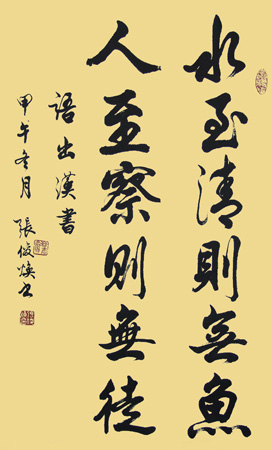 水至清則無魚
人至察則無徒
語出漢書
甲午冬月 張俊煥書